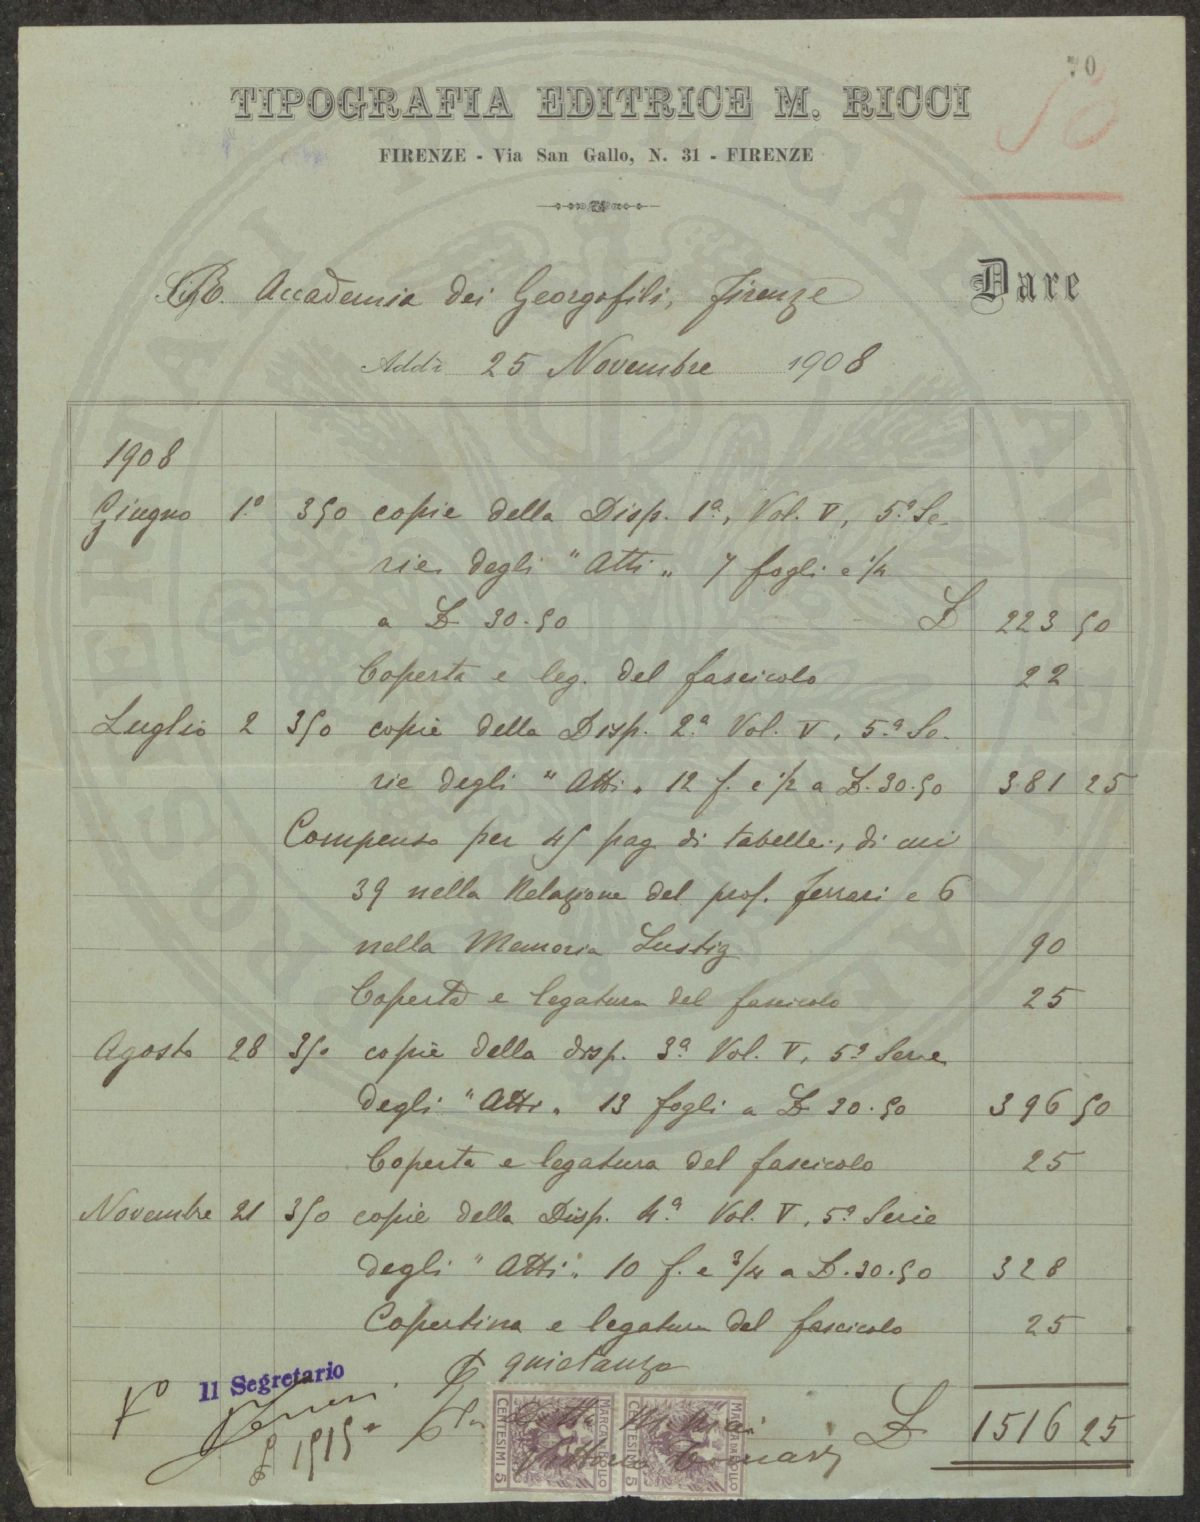 70
50
TIPOGRAFIA EDITRICE M. RICCI
FIRENZE - Via San Gallo, N. 31 - FIRENZE
R. Accademia dei Georgofili, Firenze Dare
Addì 25 Novembre 1908
1908
Giugno 1.° 350 copie della Disp. 1ª, Vol. V, 5.ª Se-
rie degli "Atti" 7 fogli e 1/4
a L 30.50 L 223 50
Coperta e leg. del fascicolo 22
Luglio 2 350 copie della Disp. 2.ª Vol. V, 5.ª Se-
rie degli "Atti" 12 f. e 1/2 a L. 30.50 381 25
Compenso per 45 pag. di tabelle, di cui
39 nella Relazione del prof. Ferrari e 6
nella Memoria Lustig 90
Coperta e legatura del fascicolo 25
Agosto 28 350 copie della disp. 3ª Vol. V, 5ª Serie
degli "Atti" 13 fogli a L 30.50 396 50
Coperta e legatura del fascicolo 25
Novembre 21 350 copie della Disp. 4.ª Vol. V, 5ª Serie
degli "Atti" 10 f. e 3/4 a L. 30.50 328
Copertina e legatura del fascicolo 25
quietanza
V° Il Segretario
L 1515
MARCA DA BOLLO CENTESIMI 5
MARCA DA BOLLO CENTESIMI 5
L 1516 25